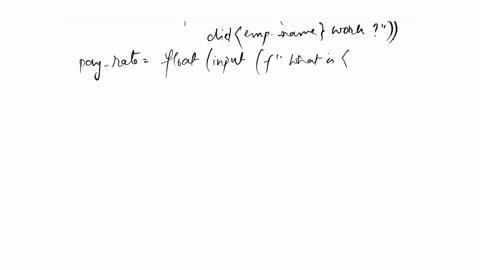 did{emp_name} work ?"))
pay_rate= float (input (f". What is {